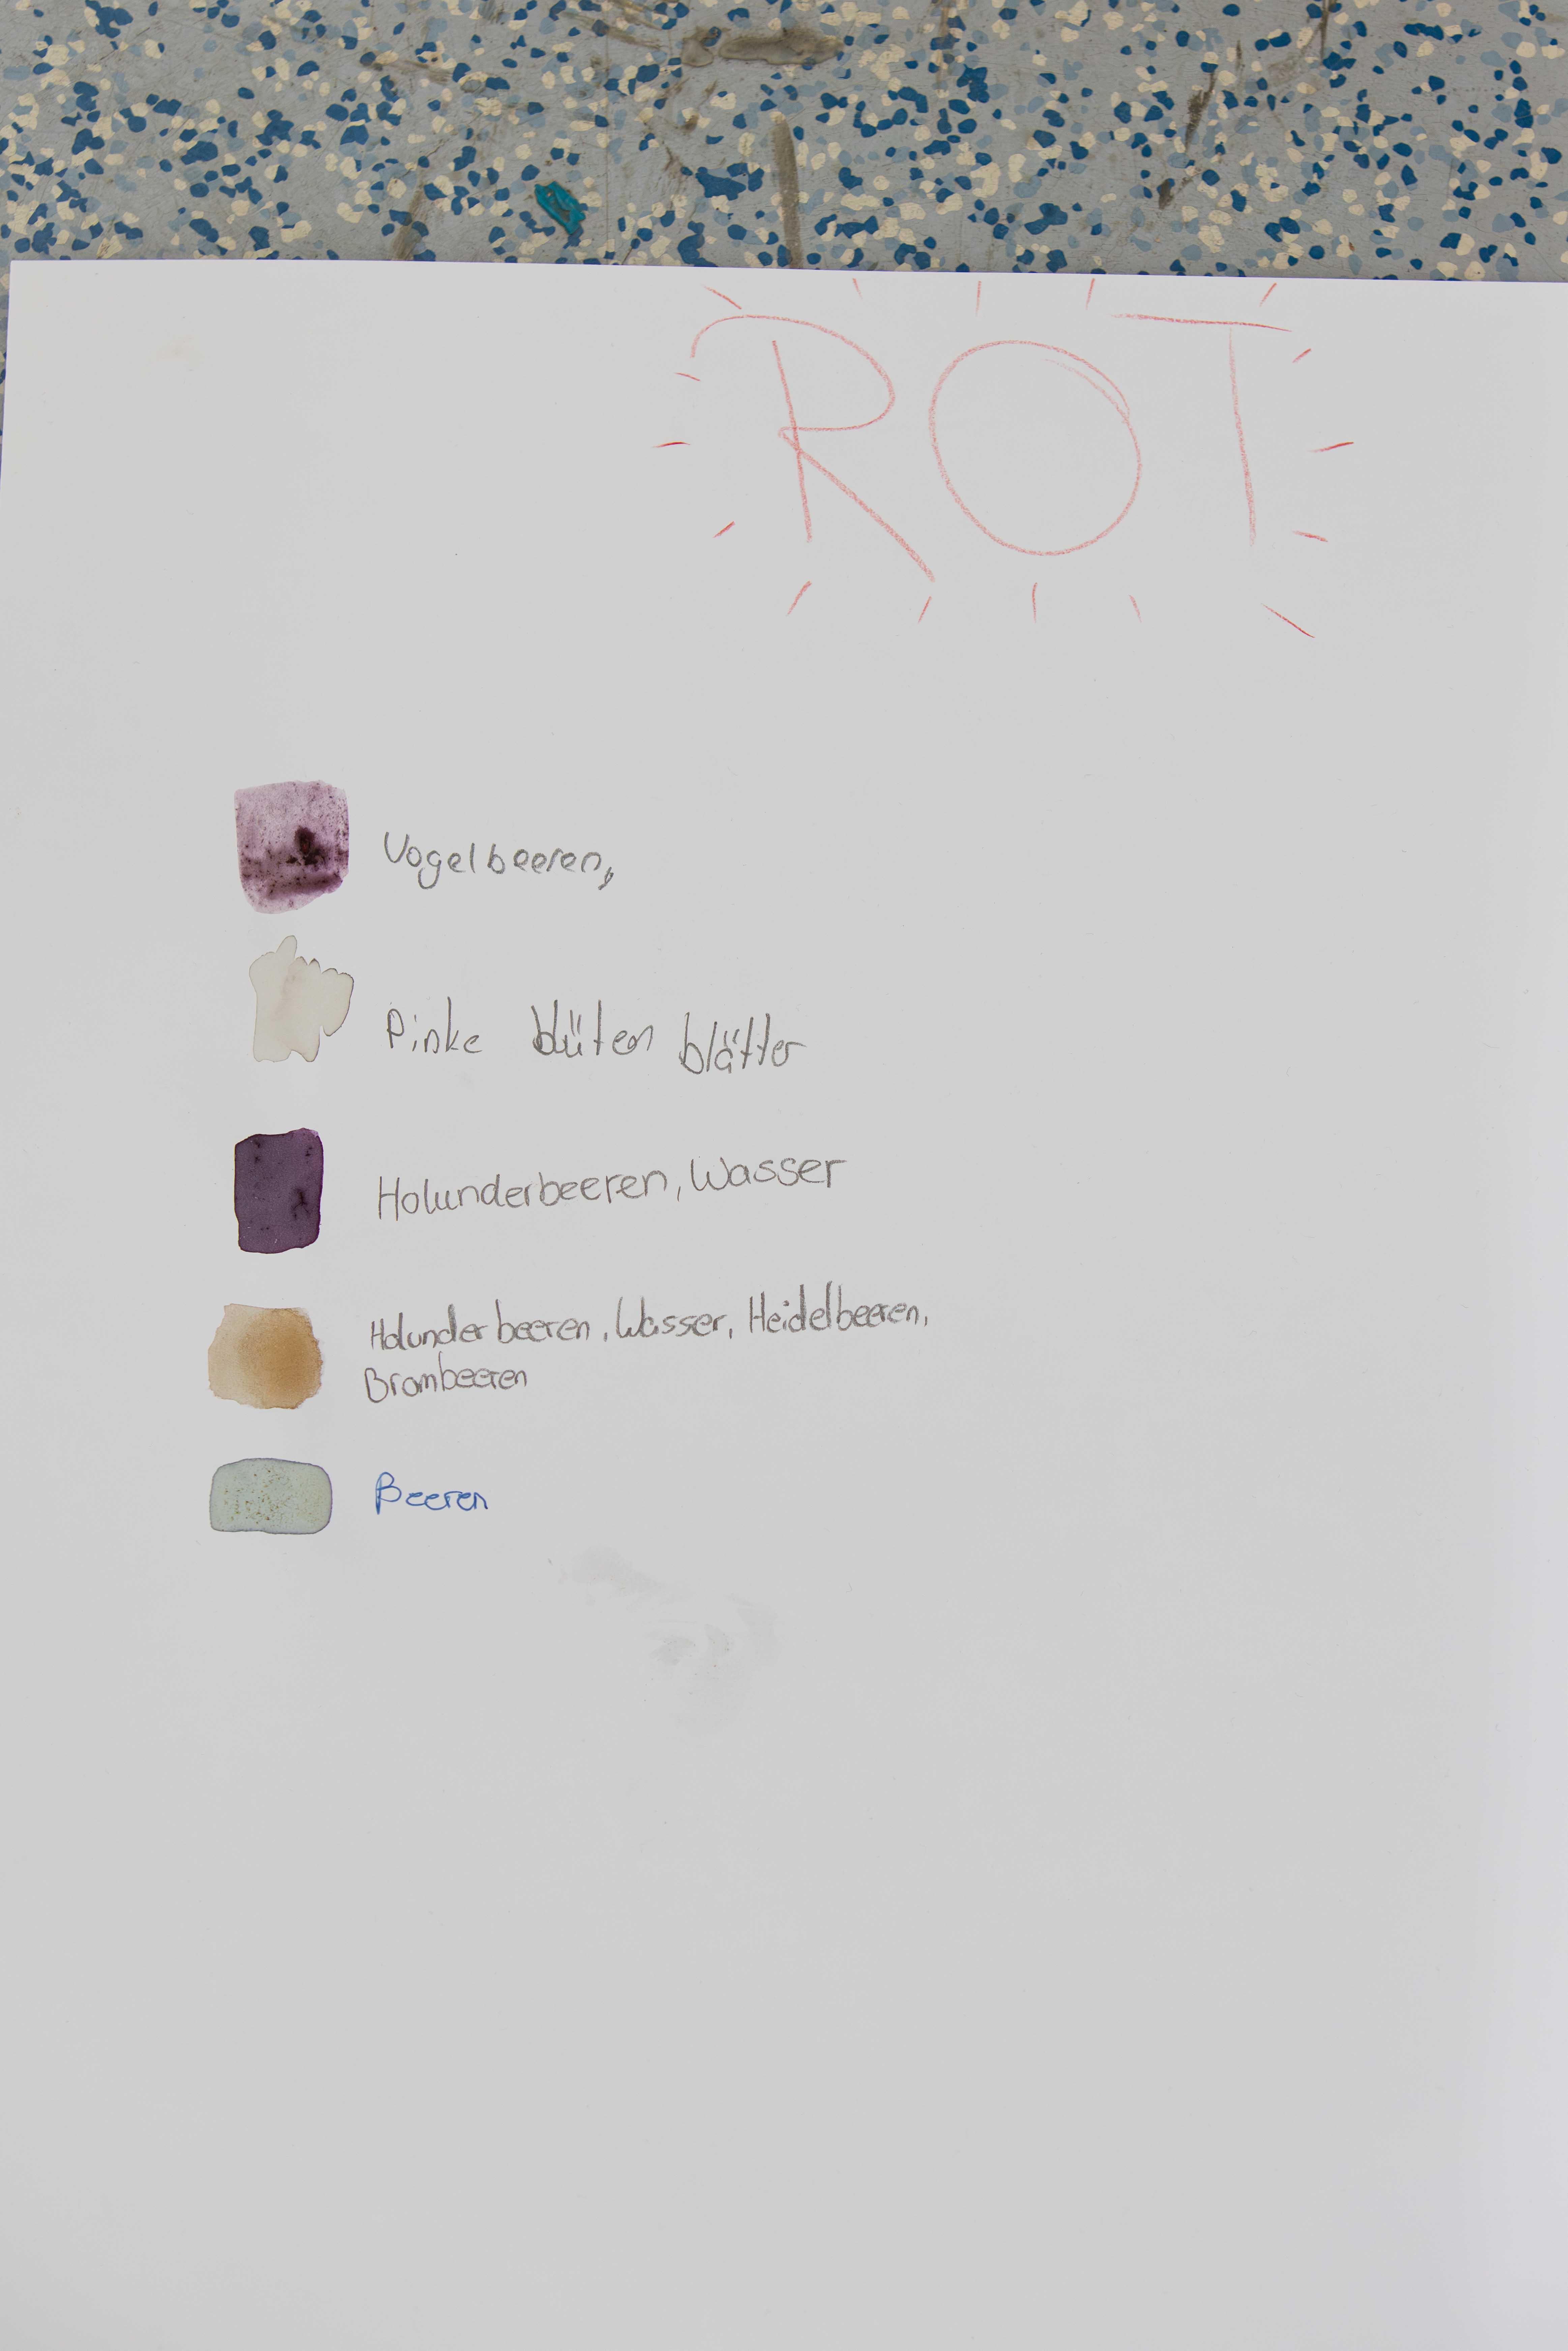 ROT
Vogelbeeren,
Pinke blüten blätter
Holunderbeeren, Wasser
Holunderbeeren, Wasser, Heidelbeeren,
Brombeeren
Beeren